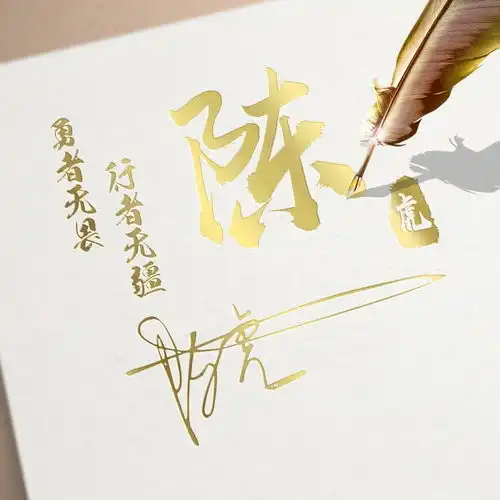 陈
虎
行者无疆
勇者无畏
陈虎